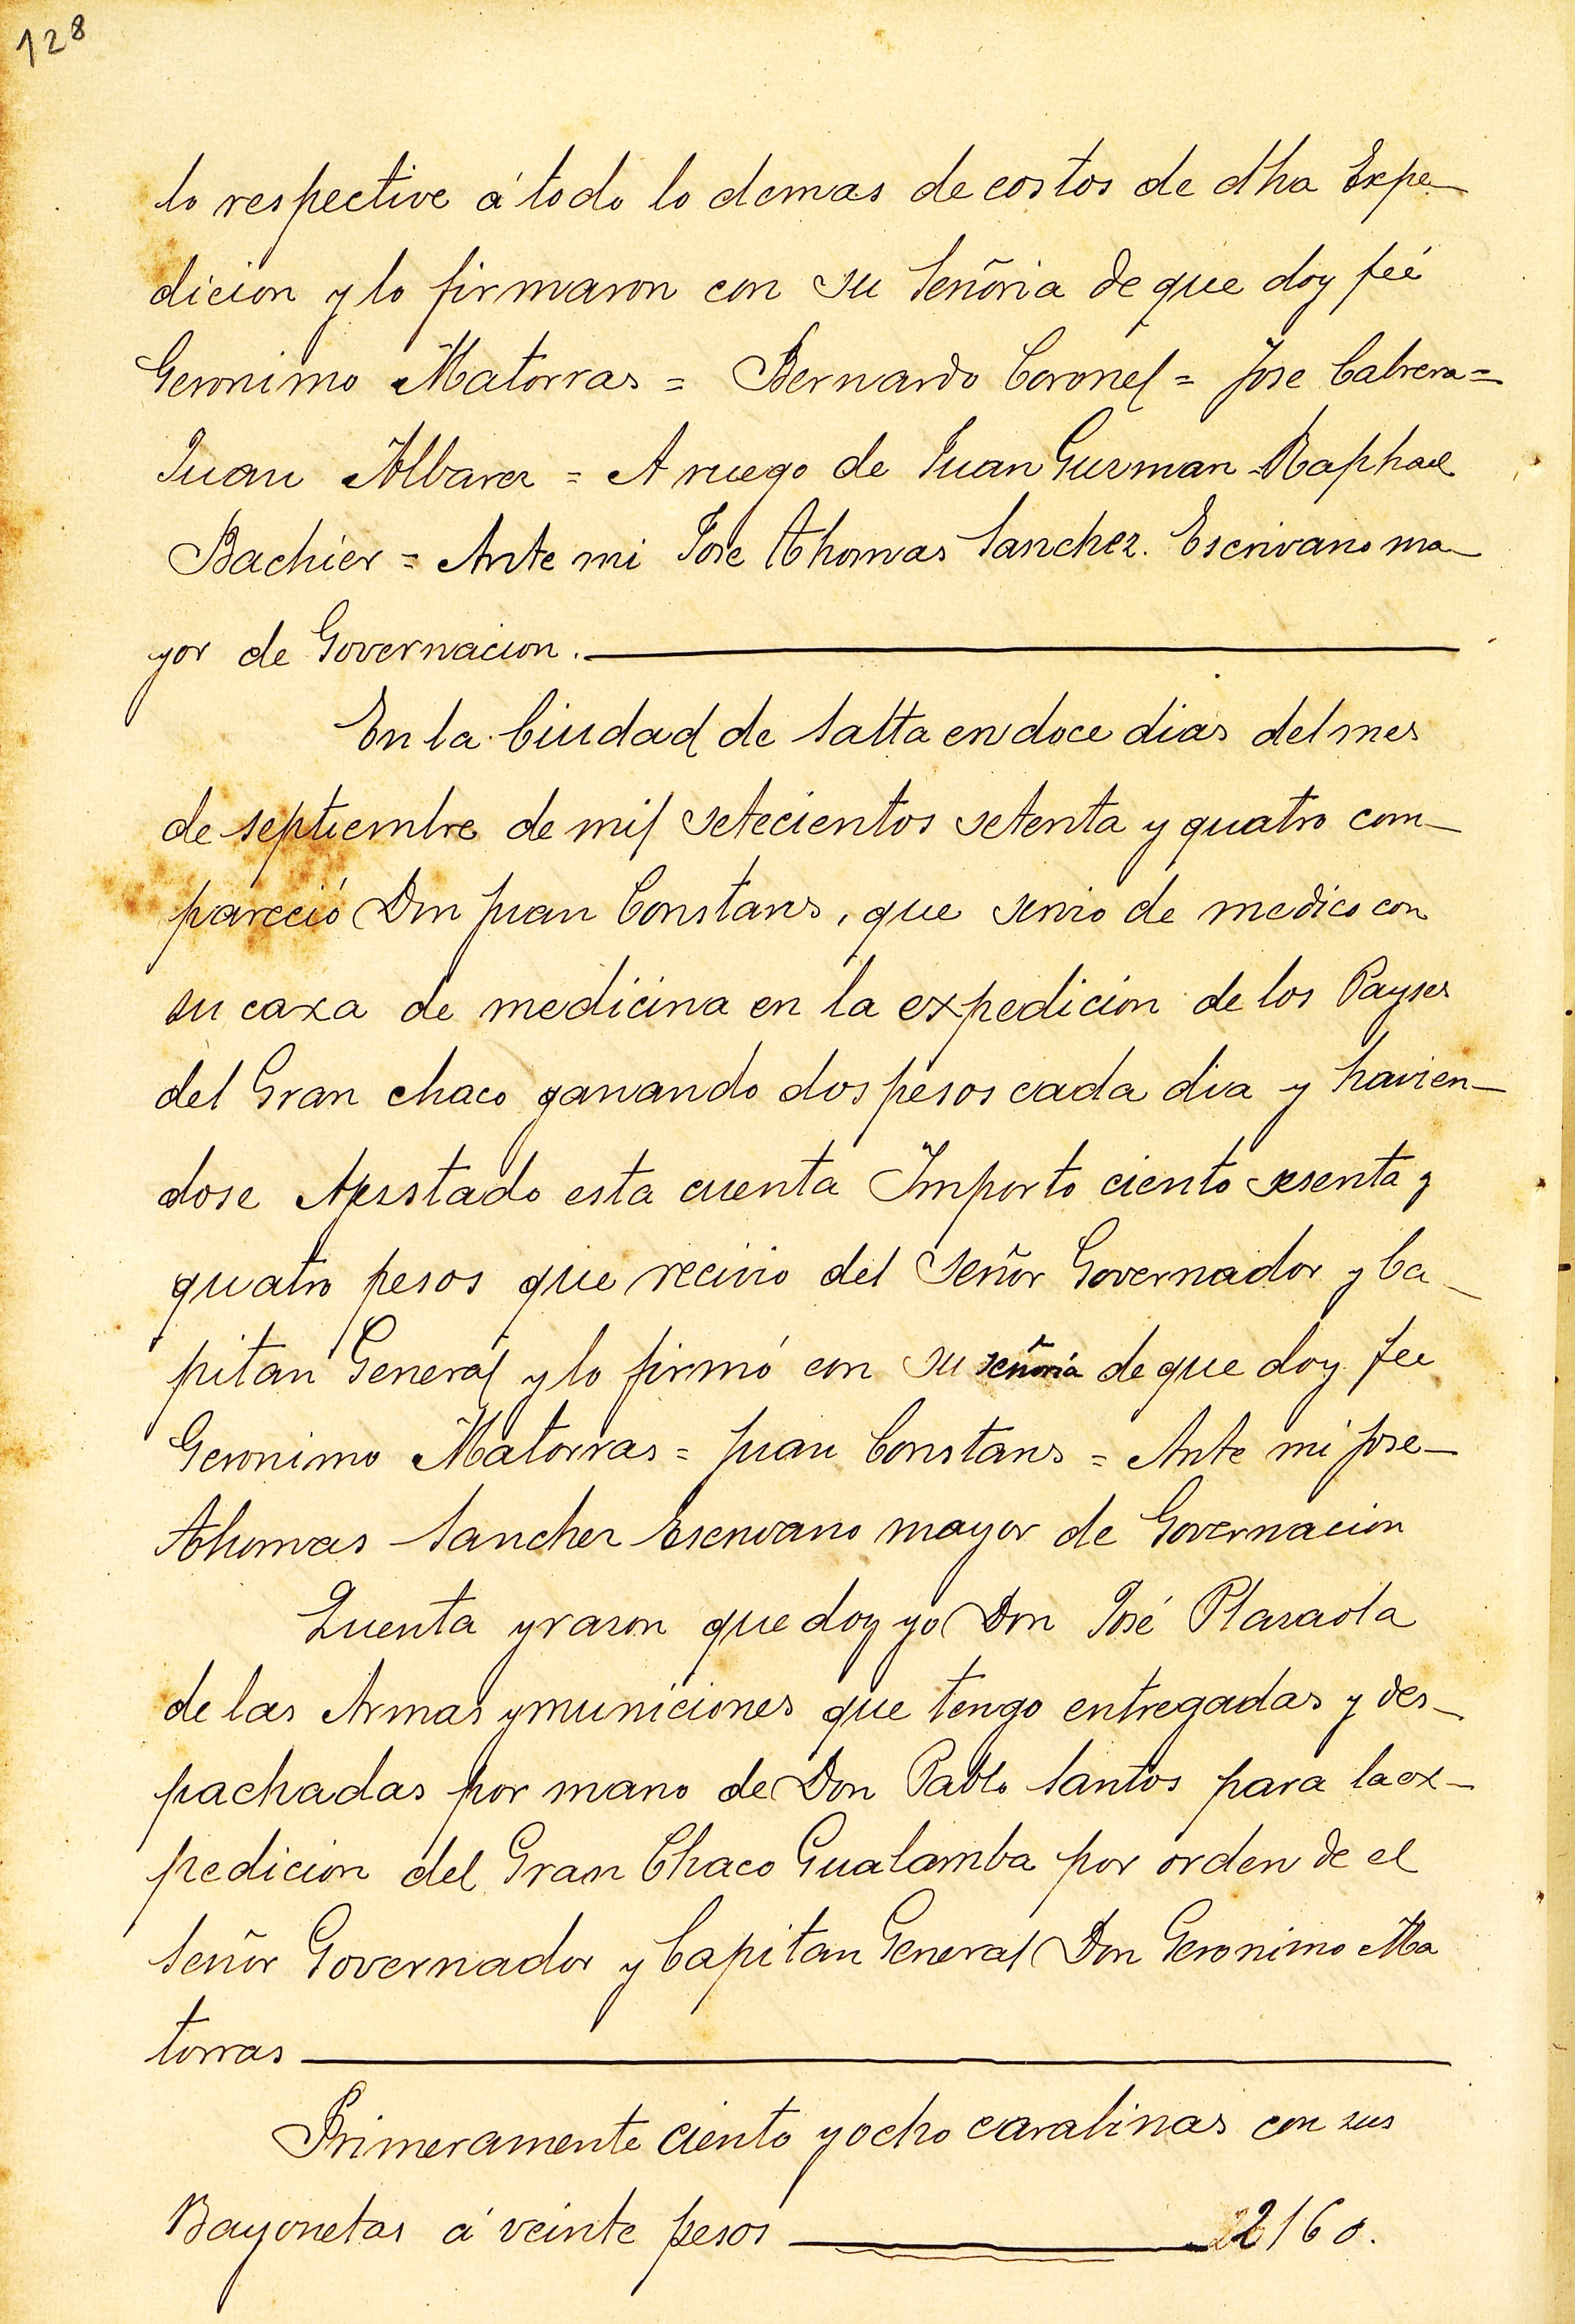 128
lo respective á todo lo demas de costos de dha Expe-
dicion y lo firmaron con su Señoria de que doy feé
Geronimo Matorras = Bernardo Coronel = Jose Cabrera =
Juan Albarez = A ruego de Juan Guzman Raphael
Bachier = Ante mi Jose Thomas Sanchez. Escrivano ma-
yor de Governacion.
En la Ciudad de Salta en doce dias del mes
de septiembre de mil setecientos setenta y quatro com-
pareció Don Juan Constans, que sirvio de medico con
su caxa de medicina en la expedicion de los Payses
del Gran chaco ganando dos pesos cada dia y havien-
dose Ajustado esta cuenta Importo ciento sesenta y
quatro pesos que recivio del Señor Governador y Ca-
pitan General y lo firmó con su señoria de que doy fee
Geronimo Matorras = Juan Constans = Ante mi Jose-
Thomas Sanchez Escrivano mayor de Governacion
Quenta y razon que doy yo Don José Plazaola
de las Armas y municiones que tengo entregadas y des-
pachadas por mano de Don Pablo Santos para la ex-
pedicion del Gran Chaco Gualamba por orden de el
Señor Governador y Capitan General Don Geronimo Ma
torras
Primeramente ciento y ocho carabinas con sus
Bayonetas á veinte pesos 2160.